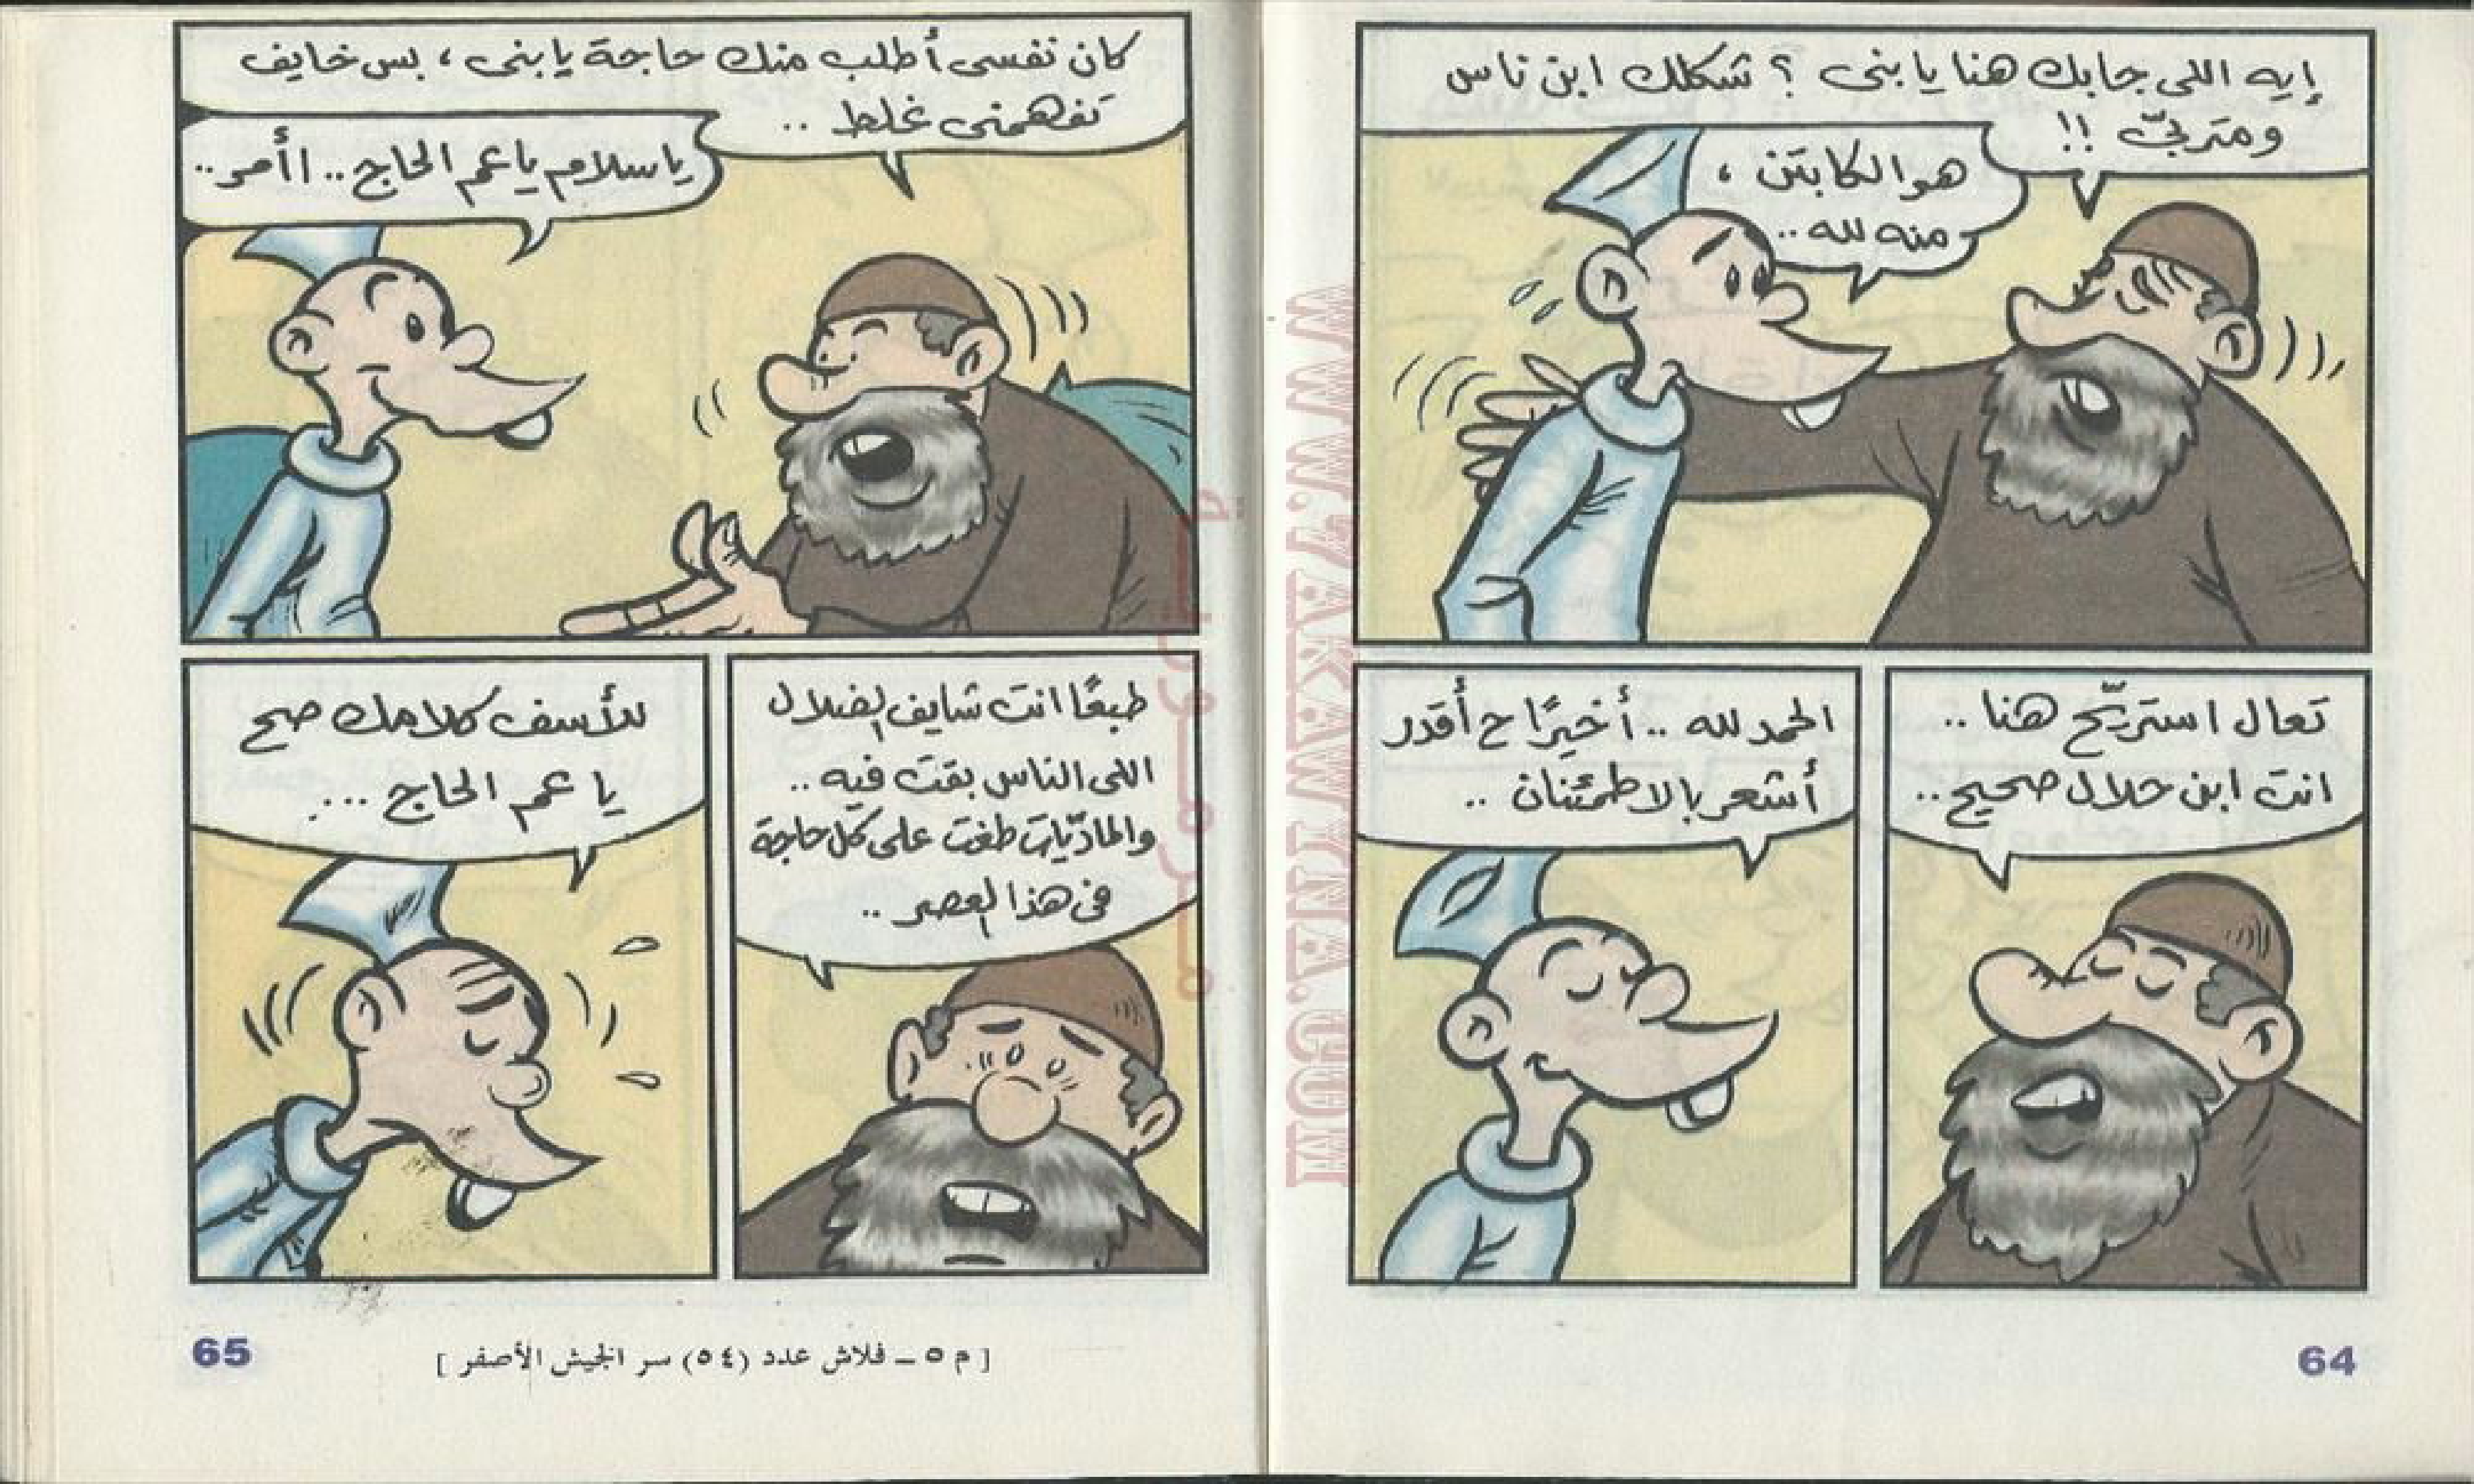 إيه اللى جابك هنا يا بنى ؟ شكلك ابن ناس
ومتربىّ !!
هو الكابتن ،
منه لله ..
تعال استريّح هنا ..
انت ابن حلال صحيح ..
الحمد لله .. أخيرًا ح أقدر
أشعر بالاطمئنان ..
64
كان نفسى أطلب منك حاجة يا بنى ، بس خايف
تفهمنى غلط ..
يا سلام يا عم الحاج .. اأمر ..
طبعًا انت شايف الضلال
اللى الناس بقت فيه ..
والمادّيات طغت على كل حاجة
فى هذا العصر ..
للأسف كلامك صح
يا عم الحاج ...
[ م ٥ ــ فلاش عدد (٥٤) سر الجيش الأصفر ]
65